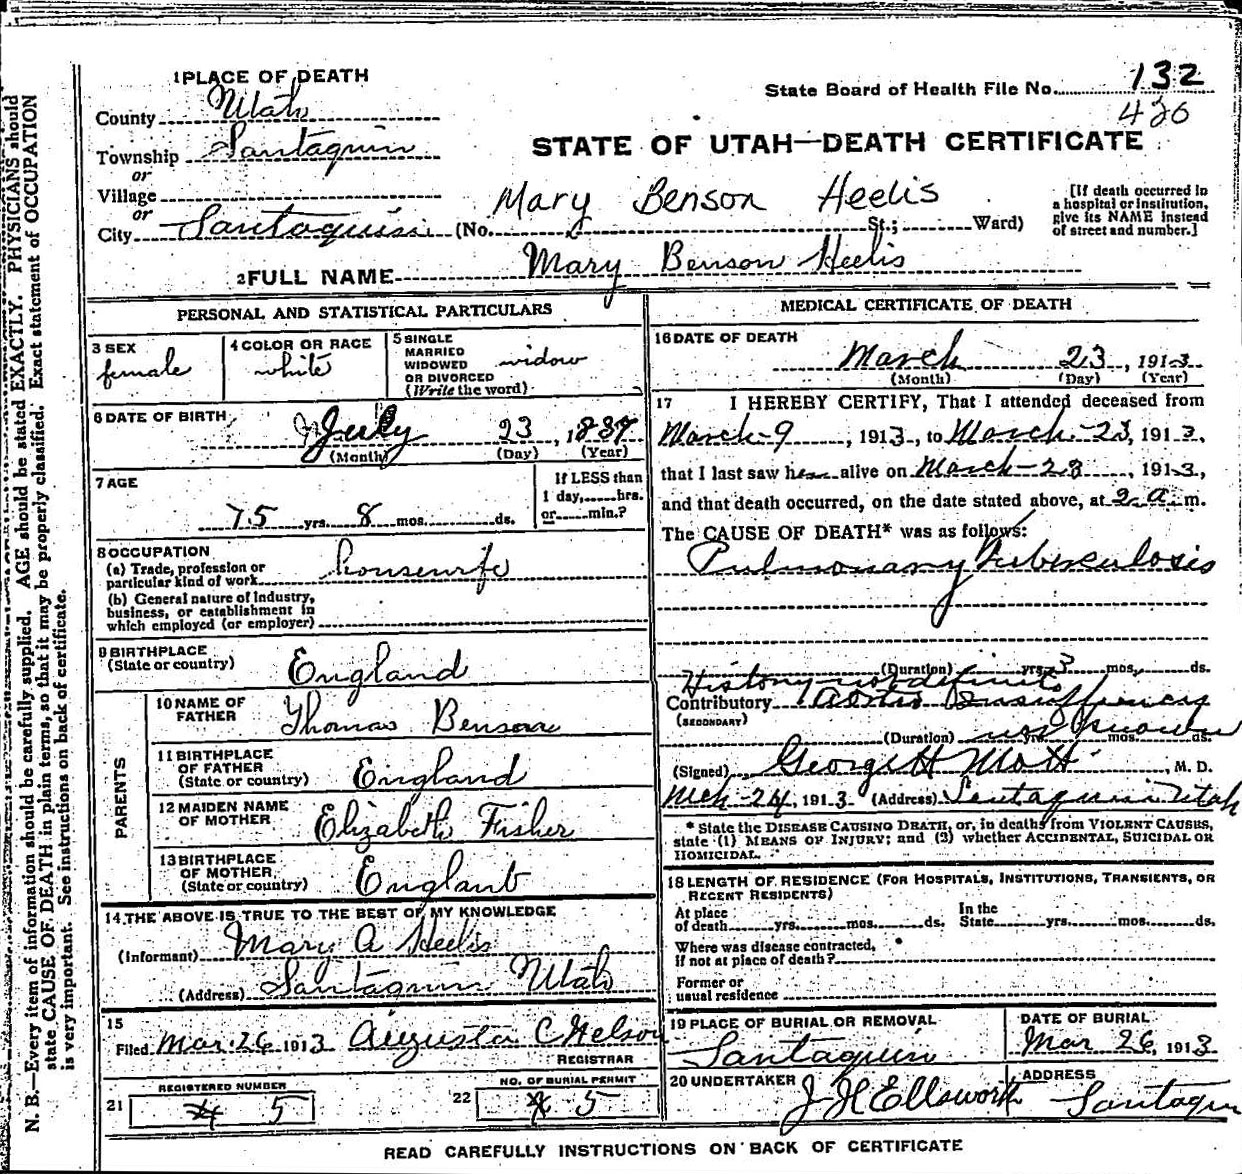 1 PLACE OF DEATH
County Utah
Township Santaquin
or
Village
or
City Santaquin (No. St.; Ward)
State Board of Health File No. 132
426
STATE OF UTAH—DEATH CERTIFICATE
Mary Benson Heelis
[If death occurred in
a hospital or institution,
give its NAME instead
of street and number.]
2 FULL NAME Mary Benson Heelis
PERSONAL AND STATISTICAL PARTICULARS
3 SEX
female
4 COLOR OR RACE
white
5 SINGLE
MARRIED
WIDOWED
OR DIVORCED
(Write the word)
widow
6 DATE OF BIRTH
July 23, 1837
(Month) (Day) (Year)
7 AGE
75 yrs. 8 mos. ds.
If LESS than
1 day, hrs.
or min.?
8 OCCUPATION
(a) Trade, profession or
particular kind of work housewife
(b) General nature of industry,
business, or establishment in
which employed (or employer)
9 BIRTHPLACE
(State or country)
England
PARENTS
10 NAME OF
FATHER
Thomas Benson
11 BIRTHPLACE
OF FATHER
(State or country)
England
12 MAIDEN NAME
OF MOTHER
Elizabeth Fisher
13 BIRTHPLACE
OF MOTHER
(State or country)
England
14 THE ABOVE IS TRUE TO THE BEST OF MY KNOWLEDGE
(Informant) Mary A Heelis
(Address) Santaquin Utah
15
Filed Mar. 26 1913 Augusta C Nelson
REGISTRAR
REGISTERED NUMBER
21 4 5
NO. OF BURIAL PERMIT
22 4 5
MEDICAL CERTIFICATE OF DEATH
16 DATE OF DEATH
March 23, 1913
(Month) (Day) (Year)
17 I HEREBY CERTIFY, That I attended deceased from
March 9, 1913, to March 23, 1913,
that I last saw her alive on March 23, 1913,
and that death occurred, on the date stated above, at 2 a. m.
The CAUSE OF DEATH* was as follows:
Pulmonary Tuberculosis
(Duration) yrs. 3 mos. ds.
History not definite
Contributory Aortic Insufficiency
(SECONDARY)
(Duration) not known yrs. mos. ds.
(Signed) George H Mott, M. D.
Mch 24, 1913 (Address) Santaquin Utah
* State the DISEASE CAUSING DEATH, or, in deaths from VIOLENT CAUSES,
state (1) MEANS OF INJURY; and (2) whether ACCIDENTAL, SUICIDAL OR
HOMICIDAL.
18 LENGTH OF RESIDENCE (FOR HOSPITALS, INSTITUTIONS, TRANSIENTS, OR
RECENT RESIDENTS)
At place
of death yrs. mos. ds.
In the
State yrs. mos. ds.
Where was disease contracted,
if not at place of death?
Former or
usual residence
19 PLACE OF BURIAL OR REMOVAL
Santaquin
DATE OF BURIAL
Mar 26, 1913
20 UNDERTAKER
J H Ellsworth
ADDRESS
Santaquin
READ CAREFULLY INSTRUCTIONS ON BACK OF CERTIFICATE
N. B.—Every item of information should be carefully supplied. AGE should be stated EXACTLY. PHYSICIANS should
state CAUSE OF DEATH in plain terms, so that it may be properly classified. Exact statement of OCCUPATION
is very important. See instructions on back of certificate.